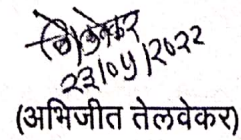 23/05/2022
(अभिजीत तेलवेकर)